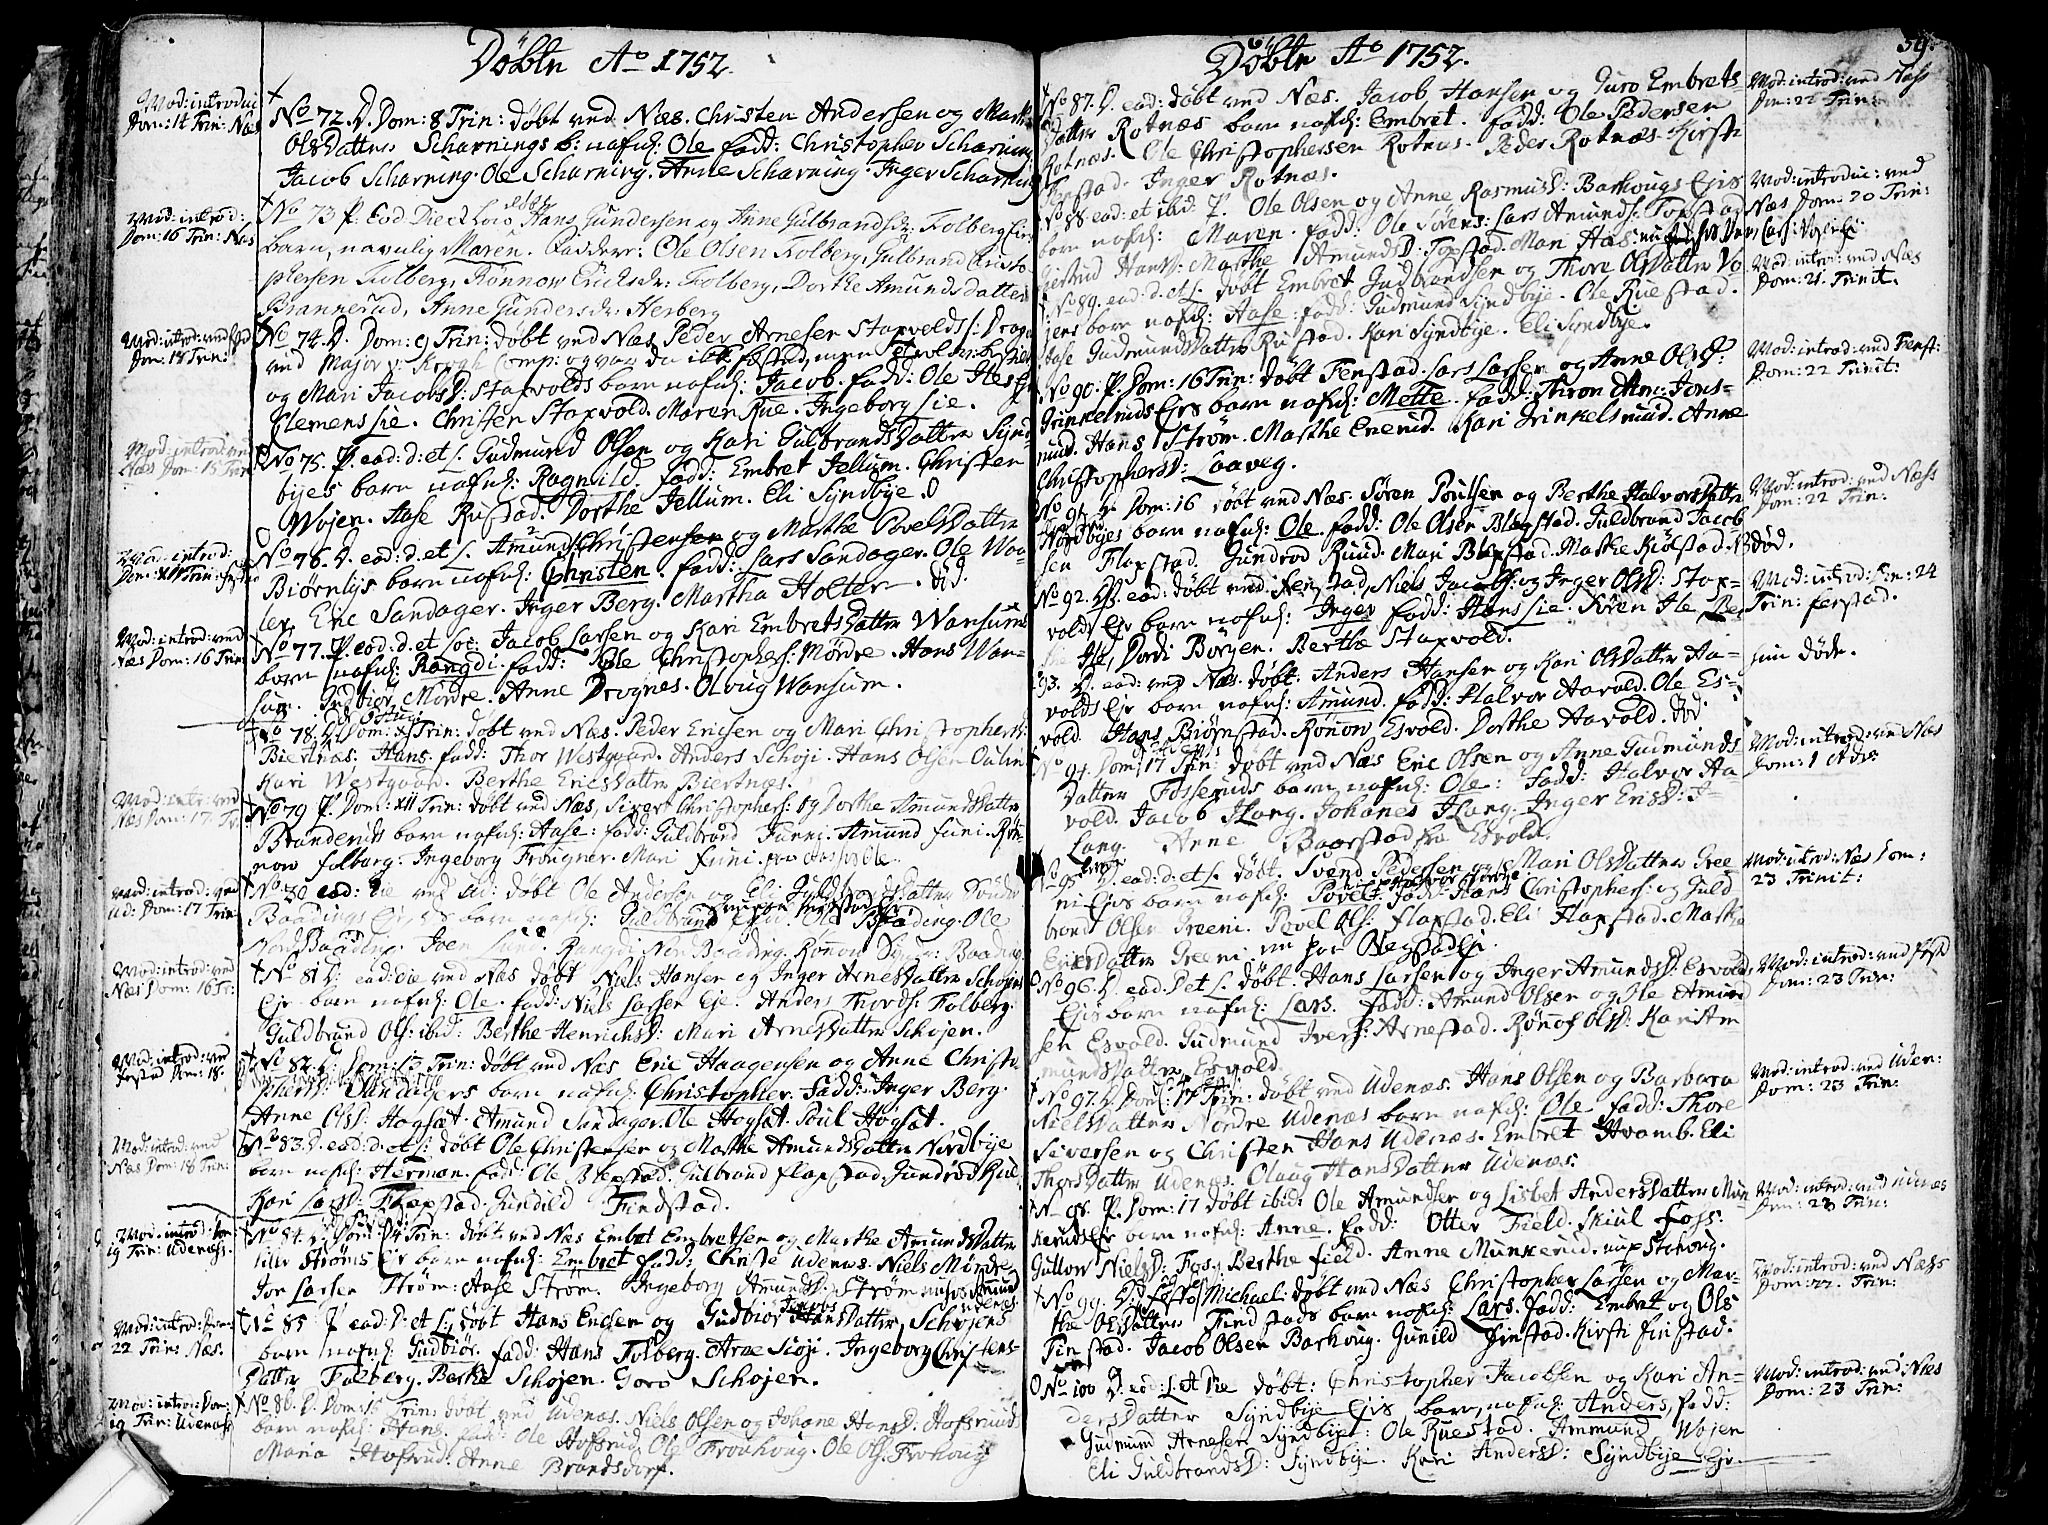 Döbte Ao 1752.
Mod: introduc
Dom: 14 Trin: Næs
No 72. D. Dom: 8 Trin: döbt ved Næs. Christen Andersen og Marthe
OlsDatter Scharnings b: nafnl: Ole fadd: Christopher Scharning
Jacob Scharning. Ole Scharning. Anne Scharning. Inger Scharning
Mod: introd:
Dom: 16 Trin: Næs
No 73 P. Eod Die et Loco Hans Gundersen og Anne Gulbrandsdr: Folberg Eie
barn, navnlig Maren. Faddere: Ole Olsen Folberg, Gulbrand Christo-
phersen Folberg, Rönnow Ericksdr: Folberg, Dorthe AmundsDatter
Brannerud, Anne Gundersdr: Herberg
Mod: introd: ved
Dom: 18 Trin:
No 74. D. Dom: 9 Trin: döbt ved Næs Peder Arnesen Staxvolds s: Drag:
ved Major v: Krogh Comp: og var da ikke
og Mari JacobsD: Staxvolds barn nafnl: Jacob. fadd: Ole
Clemens Lie. Christen Staxvold. Maren Rue. Ingeborg Lie.
Mod: introd: ved
Næs Dom: 15 Trin
No 75. P. ead: d: et L. Gudmund Olsen og Kari GulbrandsDatter Synd-
byes barn nafnl: Ragnild. fadd: Embret Jellum. Christen
Wojen. Aase Rustad. Dorthe Jellum. Eli Syndbye.
Mod: introd:
Dom: XIV Trin:
No 76. D. ead: d: et L. Amund Christensen og Marthe PovelsDatter
Biörnlys barn nafnl: Christen. fadd: Lars Sandager. Ole Woo-
ler. Eric Sandager. Inger Berg. Martha Holter. död.
Mod: introd: ved
Næs Dom: 16 Trin:
No 77. P. eod: d: et Loc: Jacob Larsen og Kari EmbretsDatter Wansums
barn nafnl: Rangdi fadd: Ole Christophers: Mördre. Hans Wan-
sum. Gudbiör Mördre. Anne Drognes. Olaug Wansum.
No 78. D. Dom: XI Trin: döbt ved Næs. Peder Ericsen og Mari Christophersd:
Biertnæs. Hans. fadd: Thor Westgaar. Anders Schoji. Hans Olsen Oulin
Kari Westgaar. Berthe EricsDatter Biertnæs.
Mod: intr: ved
Næs Dom: 17. Tr:
No 79 P. Dom: XII Trin: döbt ved Næs, Sivert Christophers: og Dorthe AmundsDatter
Branderuds barn nafnl: Aase: fadd: Guldbrand Funni. Amund Funi. Rön-
now Folberg. Ingeborg Frongner. Mari Funi.
Mod: introd: ved
Ud: Dom: 17 Trin:
No 80 ead: Die ved Ud: döbt Ole Andersen og Eli GuldbrandsDatter Sönder
Baadings barn nafnl: Guldbrand Baading. Ole
Nord Baading. Iven Lund. Rangdi Nor Baading. Rönnow Syner Baading
Mod: introd: ved
Næs Dom: 16 Tr:
No 81 D. ead: die ved Næs döbt Niels Hansen og Inger ArnesDatter Schojens
Eje barn nafnl: Ole. fadd: Niels Larsen Eje. Anders Thords: Folberg.
Guldbrand Ols: ibid: Berthe HenrichsD: Mari ArnesDatter Schojen.
Mod: introd: ved
Dom: 18.
No 82. D. Dom: 13 Trin: döbt ved Næs Eric Haagensen og Anne Christo-
phersD: Sandagers barn nafnl: Christopher. fadd: Inger Berg.
Anne OlsD: Hogsæt. Amund Sandager. Ole Hogsæt. Poul Hogsæt.
Mod: introd: ved
Næs Dom: 18 Trin:
No 83. D. ead: d: et L: döbt Ole Christensen og Marthe AmundsDatter Nordbye
barn nafnl: Herman. fadd: Ole Blexstad. Gulbrand Flaxstad. Gundrod Ruud.
Kari LarsD: Flaxstad. Gunild Findstad.
Mod: introd: Dom:
19 Trin: Udenæs.
No 84. D. Dom: 14 Trin: döbt ved Næs Embret Embretsen og Marthe AmundsDatter
lille Ströms Ej barn nafnl: Embret fadd: Christe Udenæs. Niels Mördre
Jon Larsen Ström. Aase Ström. Ingeborg AmundsD: Ström
Mod: introd: Dom:
22 Trin: Næs.
No 85 P ead: D: et L: döbt Hans Ericsen og Gudbiör Datter Schojens
barn nafnl: Gudbiör. fadd: Hans Folberg. Arne Scioji. Ingeborg Christens-
Datter Folberg. Berthe Schojen. Goro Schojen.
Mod: introd: Dom:
19 Trin: Udenæs
No 86. D. Dom: 15 Trin: döbt ved Udenæs. Niels Olsen og Johane HansD: Hofsruuds
barn nafnl: Hans. fadd: Ole Hofsrud. Ole Frovhoug. Ole Ols: Frovhoug
Maria Hofsrud. Anne Brandsdorf.
Döbte Ao 1752.
59.
No 87. D. ead: döbt ved Næs. Jacob Hansen og Guro Embrets
Datter Rotnæs barn nafnl: Embret. fadd: Ole Pedersen
Rotnæs. Ole Christophersen Rotnæs. Peder Rotnæs. Kirsti
Topstad. Inger Rotnæs.
Mod: introd: ved Næss
Dom: 22 Trin:
No 88. ead: et ibid: P. Ole Olsen og Anne RasmusD: Barhougs Ejes
barn nafnl: Maren. fadd: Ole Sörens: Lars Amunds: Topstad
Giertrud HansD: Marthe AmundsD: Topstad. Mari
Mod: introduc: ved
Næs Dom: 20 Trin:
No 89. ead: d: et L. döbt Embret Gudbrandsen og Thore OlsDatter Wo-
jens barn nafnl: Aase. fadd: Gudmund Syndbye. Ole Ruestad.
Aase GudmundsDatter Rustad. Kari Syndbye. Eli Syndbye.
Mod: introd: ved Næs
Dom: 21. Trinit.
No 90. P. Dom: 16 Trin: döbt Fenstad. Lars Larsen og Anne OlsD:
Grinkelruds Ejes barn nafnl: Mette. fadd: Thron Am: Jons-
ruud. Hans Ström. Marthe Enerud. Kari Grinkelsruud. Anne
ChristophersD: Laaveg.
Mod: introd: ved Fenst:
Dom: 22 Trinit:
No 91. D. Dom: 16 döbt ved Næs. Sören Poulsen og Berthe HalvorsDatter
Nordbyes barn nafnl: Ole. fadd: Ole Olsen Blegstad. Guldbrand Jacob-
sen Flaxstad. Gundrod Ruud. Mari Blexstad. Marthe Kiölstad. död.
Mod: introd: ved Næss
Dom: 22 Trin:
No 92. D. ead: döbt ved Fenstad, Niels Jacobs: og Inger OlsD: Stax-
volds Eje barn nafnl: Inger fadd: Hans Lie. Sören Ile
Ile, Dordi Börgen. Berthe Staxvold.
Mod: introd: Dom: 24
Trin: fenstad.
93. D. ead: ved Næs. döbt: Anders Hansen og Kari OlsDatter Aa-
volds Eje barn nafnl: Amund. fadd: Halvor Aavold. Ole Es-
vold. Hans Biörnstad. Rönnow Esvold. Dorthe Aavold. död.
döde.
No 94. Dom: 17 Trin: döbt ved Næs Eric Olsen og Anne Gudmunds
Datter Fosseruds barn nafnl: Ole: fadd: Halvor Aa-
vold. Jacob Hang. Johanes Hang. Inger ErisD:
Lang. Anne Baarstad fra Esvold.
Mod: introd: ved Næs
Dom: 1 Adv:
No 95 D. ead: d: et L. döbt. Svend Pedersen og Mari OlsDatter Gree-
ni Ejes barn nafnl: Povel: fadd: Hans Christophers: og Guld
brand Olsen Greeni. Povel Ols: Flaxstad. Eli Flaxstad. Marthe
EricsDatter Greeni
Mod: introd: Næs Dom:
23 Trinit:
No 96. D. ead. D et L. döbt. Hans Larsen og Inger AmundsD: Esvold
Ejes barn nafnl: Lars. fadd: Amund Olsen og Ole Amund
sen Esvold. Gudmund Ivers: Arnestad. Rönnof OlsD: Kari Am
mundsDatter Esvold.
Mod: introd: ved
Dom: 23 Trin:
No 97. D. Dom: 17 Trin: döbt ved Udenæs. Hans Olsen og Barbara
NielsDatter Nordre Udenæs barn nafnl: Ole. fadd: Thore
Siversen og Christen Hans Udenæs. Embret Hvamb. Eli
ThorsDatter Udenæs. Olaug HansDatter Udenæs.
Mod: introd: ved Uden:
Dom: 23 Trin:
No 98. P. Dom: 17 döbt ibid: Ole Amundsen og Lisbet AndersDatter Mun-
kerud Ejes barn nafnl: Anne. fadd: Otter Field. Skiul Foss.
Gullow NielsD: Fos. Berthe Field. Anne Munkerud.
Mod: introd: ved Udenæs
Dom: 23 Trin:
No 99. D. Festo Michael: döbt ved Næs Christopher Larsen og Mar-
the OlsDatter Findstads barn nafnl: Lars. fadd: Embret og Ols
Finstad. Jacob Olsen Barhoug. Gunild Finstad. Kirsti Finstad.
Mod: introd: ved Næss
Dom: 22. Trin:
No 100 D. eod: L et Die döbt: Christopher Jacobsen og Kari An-
dersDatter Syndbye Ejes barn, nafnl: Anders, Fadd:
Gudmund Arnesen Syndbye: Ole Ruestad. Ammund Wojen
Eli GuldbrandsD: Syndbye. Kari AndersD: Syndbye Eje.
Mod: introd: ved Næs
Dom: 23 Trin: